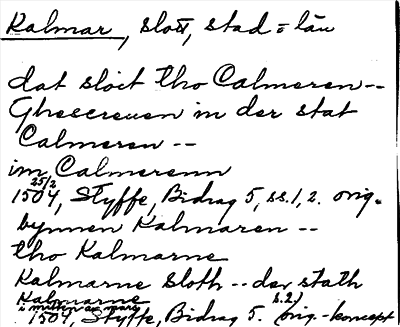 Kalmar, slott, stad o län
dat slot tho Calmeren--
Ghescreuen in der stat
Calmeren --
im Calmerenn
25/2
1504, Styffe, Bidrag 5, ss. 1, 2. orig.
bynnen Kalmaren --
tho Kalmarne
Kalmarne Sloth -- der stath
Kalmarne
i mitten av mars s. 2)
1504, Styffe, Bidrag 5. (orig.-koncept